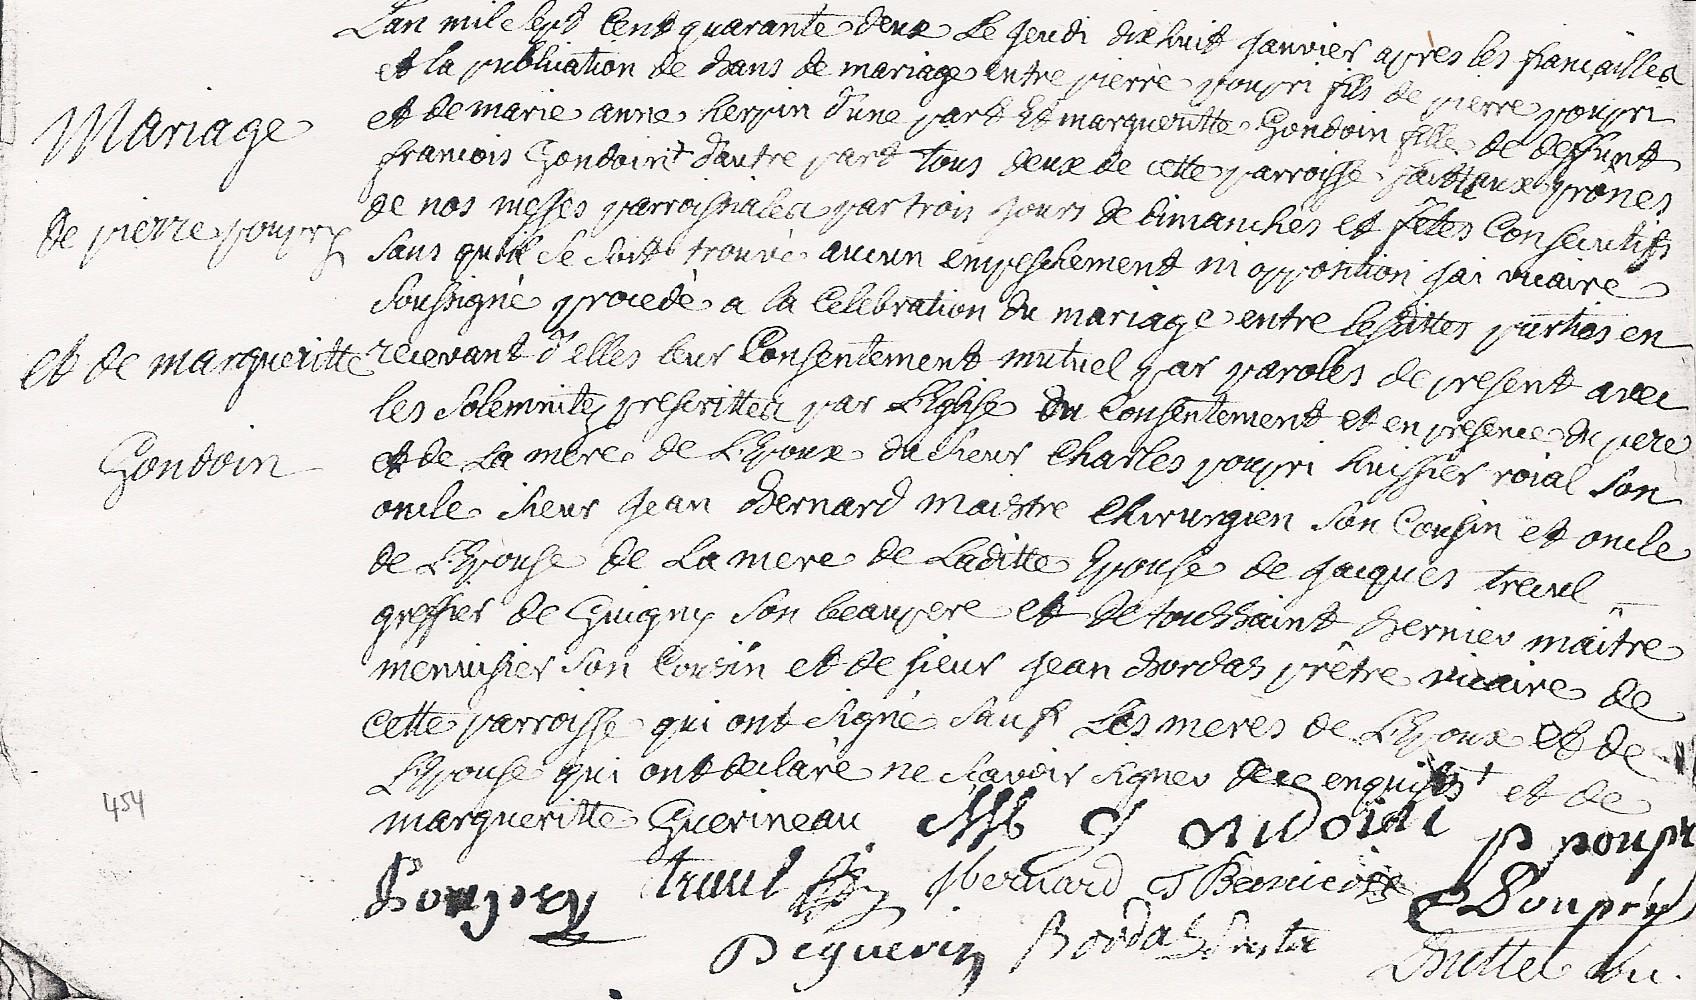 L'an mil sept cent quarante deux le jeudi dix huit janvier apres les fiancailles
et la publication de bans de mariage entre pierre poupri fils de pierre poupri
Mariage
et de marie anne herpin d'une part et margueritte Gondoin fille de deffunt
francois Gondoin d'autre part tous deux de cette parroisse faitte aux prônes
de nos messes parroissiales par trois jours de dimanches et fêtes consecutifs
de pierre poupry
sans qu'il se soit trouvé aucun empeschement ni opposition j'ai vicaire
soussigné procedé a la celebration du mariage entre lesdittes parties en
et de margueritte
recevant d'elles leur consentement mutuel par paroles de present avec
les solemnitez prescrittes par l'Eglise du consentement et en presence du pere
Gondoin
et de la mere de l'Epoux du sieur Charles poupri huissier roial son
oncle sieur jean Bernard maistre chirurgien son cousin et oncle
de l'Epouse de la mere de laditte Epouse de jacques treuil
greffier de Guigny son beaupere et de toussaint Bernier maître
menuisier son cousin et de sieur jean Bordas prêtre vicaire de
cette parroisse qui ont signé sauf les meres de l'Epoux et de
l'Epouse qui ont declaré ne scavoir signer de ce enquises et de
454
margueritte Guerineau
M Gondoin
p poupri
Poupry
treuil
J bernard
T Bernier
C Poupry
Bordas Prestre